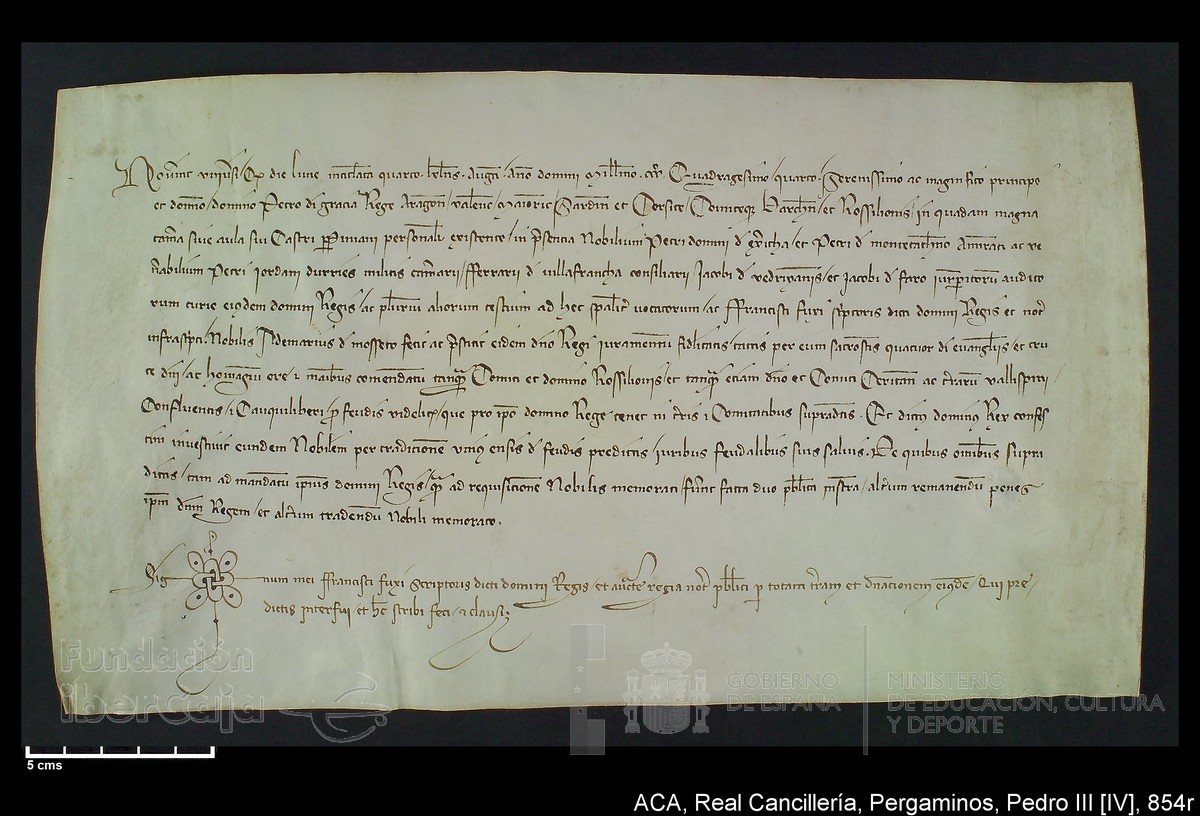 Noverint universi Qd die lune intitulata quarto kalens. Augusti anno domini Millimo. CCC. Quadragesimo quarto. Serenissimo ac magnifico principe
et domno domino Petro di gracia Rege Aragon Valenc Maioric Sardin et Corsice Comiteq Barchn et Rossilionis in quadam magna
camera sive aula sui Castri Perpiniani personalr existente in presencia Nobilium Petri domini d exericha et Petri d montecatheno Amirati ac ve
nabilium Petri iordani durries militis camerarii Ferrarii d villafrancha consiliarii Jacobi d et Jacobi d faro iurisperitorum audito
rum curie eiusdem domini Regis ac plurium aliorum testium ad hec specialit vocatorum ac ffrancisci fuxi scriptoris dicti domini Regis et not
infrascripti. Nobilis Ademarius d mosseto fecit ac prestitit eidem dno Regi iuramentum fidelitatis tactis per eum sacrosanctis quatuor di evangliis et cru
ce dni ac homagium ore et manibus comendatum tanquam Comiti et domino Rossilionis et tanquam etiam dno et Comiti Ceritan ac terrarum vallispirii
Confluentis et Cauquiliberi p feudis videlicet que pro ipo domino Rege tenet in terris et Comitatibus supradictis. Et dictus dominus Rex confes
tim investivit eundem Nobilem per tradicionem unius ensis d feudis predictis iuribus feudalibus suis salvis. De quibus omnibus supra
dictis tam ad mandatum ipsius domini Regis quam ad requisicionem Nobilis memorati fuerunt facta duo publica instra alterum remanendum penes
ipm dnm Regem et alterum tradendum Nobili memorato.
Sig num mei ffrancisci fuxi scriptoris dicti domini Regis et aucte regia not publici p totam terram et dnacionem eiusdem Qui pre
dictis interfui et hec scribi feci et clausi
Fundación
ibercaja
GOBIERNO
DE ESPAÑA
MINISTERIO
DE EDUCACIÓN, CULTURA
Y DEPORTE
5 cms
ACA, Real Cancillería, Pergaminos, Pedro III [IV], 854r